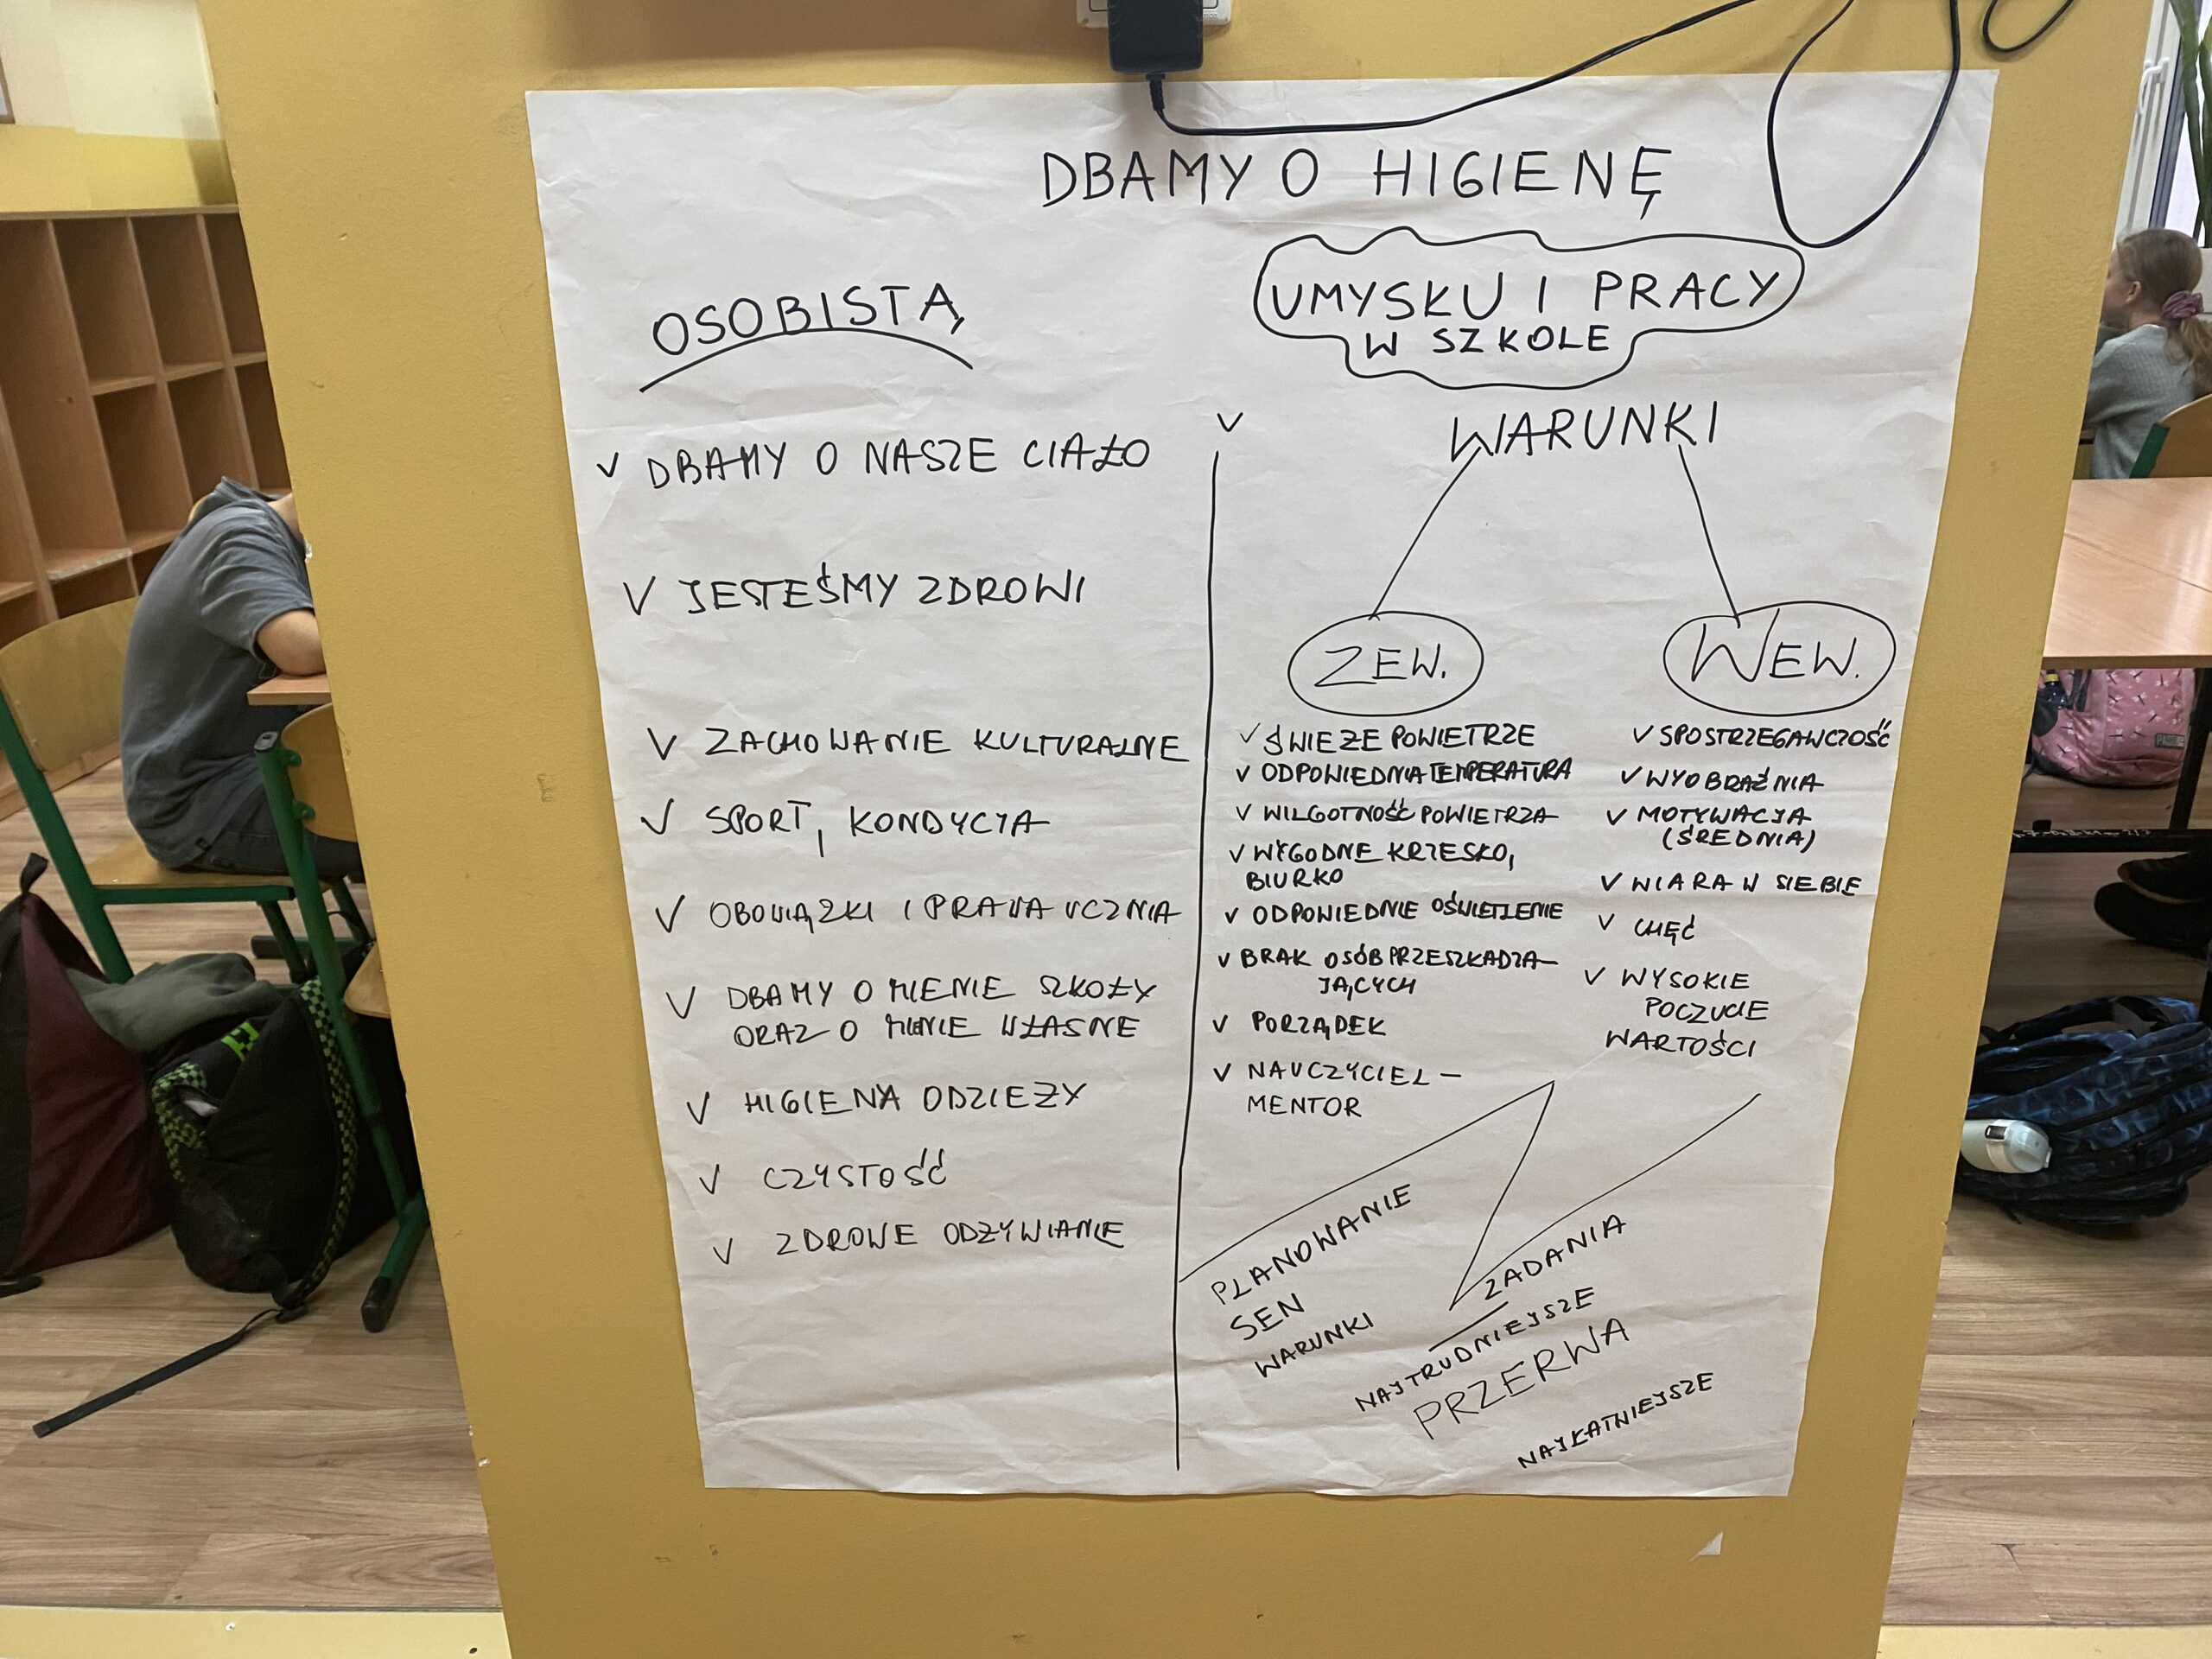 DBAMY O HIGIENĘ
OSOBISTĄ
V DBAMY O NASZE CIAŁO
V JESTEŚMY ZDROWI
V ZACHOWANIE KULTURALNE
V SPORT, KONDYCJA
V OBOWIĄZKI I PRAWA UCZNIA
V DBAMY O MIENIE SZKOŁY
ORAZ O MIENIE WŁASNE
V HIGIENA ODZIEŻY
V CZYSTOŚĆ
V ZDROWE ODŻYWIANIE
UMYSŁU I PRACY
W SZKOLE
V WARUNKI
ZEW.
V ŚWIEŻE POWIETRZE
V ODPOWIEDNIA TEMPERATURA
V WILGOTNOŚĆ POWIETRZA
V WYGODNE KRZESŁO,
BIURKO
V ODPOWIEDNIE OŚWIETLENIE
V BRAK OSÓB PRZESZKADZA-
JĄCYCH
V PORZĄDEK
V NAUCZYCIEL -
MENTOR
WEW.
V SPOSTRZEGAWCZOŚĆ
V WYOBRAŹNIA
V MOTYWACJA
(ŚREDNIA)
V WIARA W SIEBIE
V CHĘĆ
V WYSOKIE
POCZUCIE
WARTOŚCI
PLANOWANIE
SEN
WARUNKI
ZADANIA
NAJTRUDNIEJSZE
PRZERWA
NAJŁATWIEJSZE